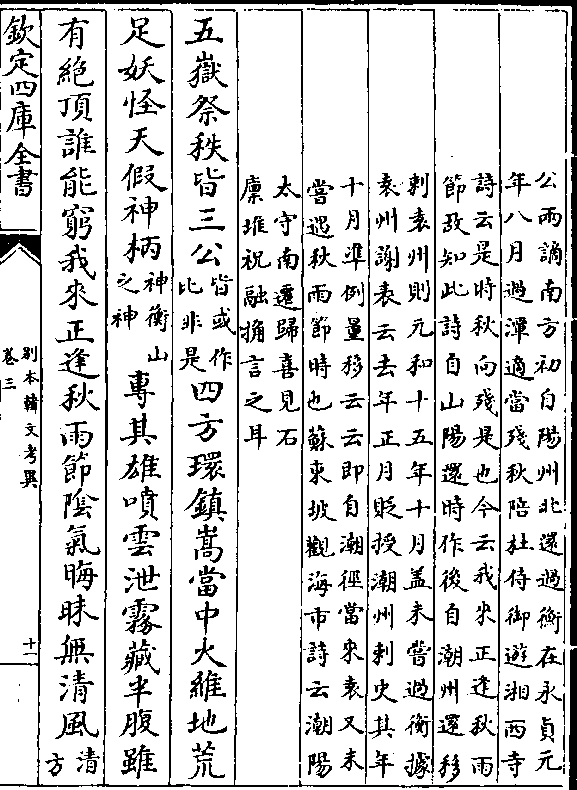 公兩謫南方初自陽州北還過衡在永貞元
年八月過潭適當殘秋陪杜侍御遊湘西寺
詩云是時秋向殘是也今云我來正逢秋雨
節故知此詩自山陽還時作後自潮州還移
刺袁州則元和十五年十月盖未嘗過衡據
袁州謝表云去年正月貶授潮州刺史其年
十月準例量移云云即自潮徑當來袁又未
嘗遇秋雨節時也蘇東坡觀海市詩云潮陽
太守南遷歸喜見石
廩堆祝融言之耳
五嶽祭秩皆三公皆或作比非是四方環鎮嵩當中火維地荒
足妖怪天假神柄神衡山之神專其雄噴雲泄霧藏半腹雖
有絶頂誰能窮我來正逢秋雨節陰氣晦昧無清風清方
欽定四庫全書
別本韓文考異
卷三
十一